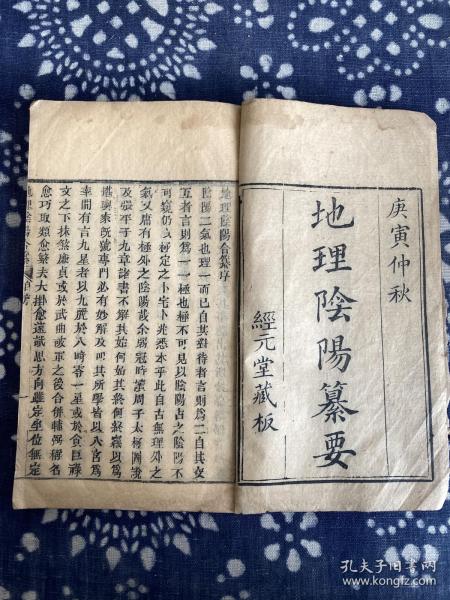 庚寅仲秋
地理陰陽纂要
經元堂藏板
地理陰陽合纂序
陰陽二氣也理一而已自其對待者言則為二自其交
互者言則為一一極也極不可見以陰陽占之陰陽不
可窺仍以極定之卜宅卜兆悉本乎此自古無理外之
氣又庸有極外之陰陽哉余弱冠時讀周子太極圖說
及張平子九章諸書不解其始何始其終何終竊以為
堪輿家所號專門必有妙解及叩其所學皆以八宮為
率間有言九星者以九麗於八時寄一星或於貪巨祿
文之下抹煞廉貞或於武曲破軍之後合併輔弼稱名
愈巧取類愈繁夫大卦愈遠
思方向雖定坐位無定
孔夫子旧书网
www.kongfz.com